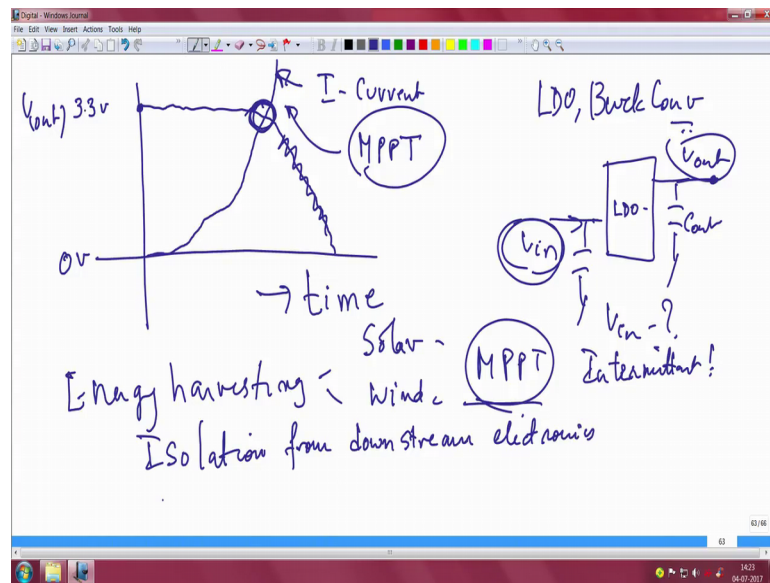 Digital - Windows Journal
File Edit View Insert Actions Tools Help
I - Current
V(out) 3.3v
MPPT
0v
→ time
LDO, Buck Conv
Vout
LDO-
Cout
Vin
Vin - ?
Intermittent!
Solar -
Energy harvesting : Wind - MPPT
ISolation from downstream electronics
63/66
63
14:23
04-07-2017